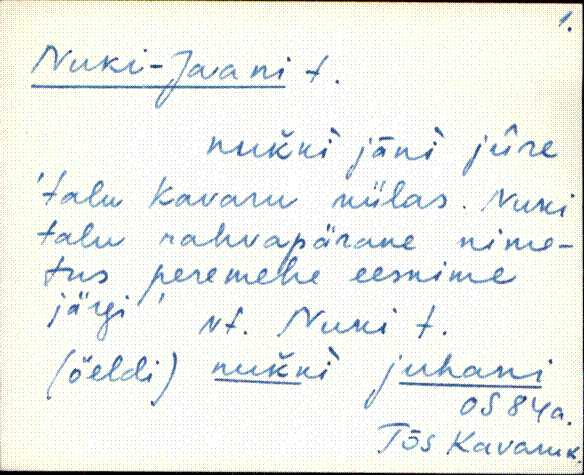 1.
Nuki-Jaani t.
nuk̆ki jāni jûre
'talu Kavaru külas. Nuki
talu rahvapärane nime-
tus peremehe eesnime
järgi' vt. Nuki t.
(öeldi) nuk̆ki juhani
OS 84a.
Tõs Kavaruk.